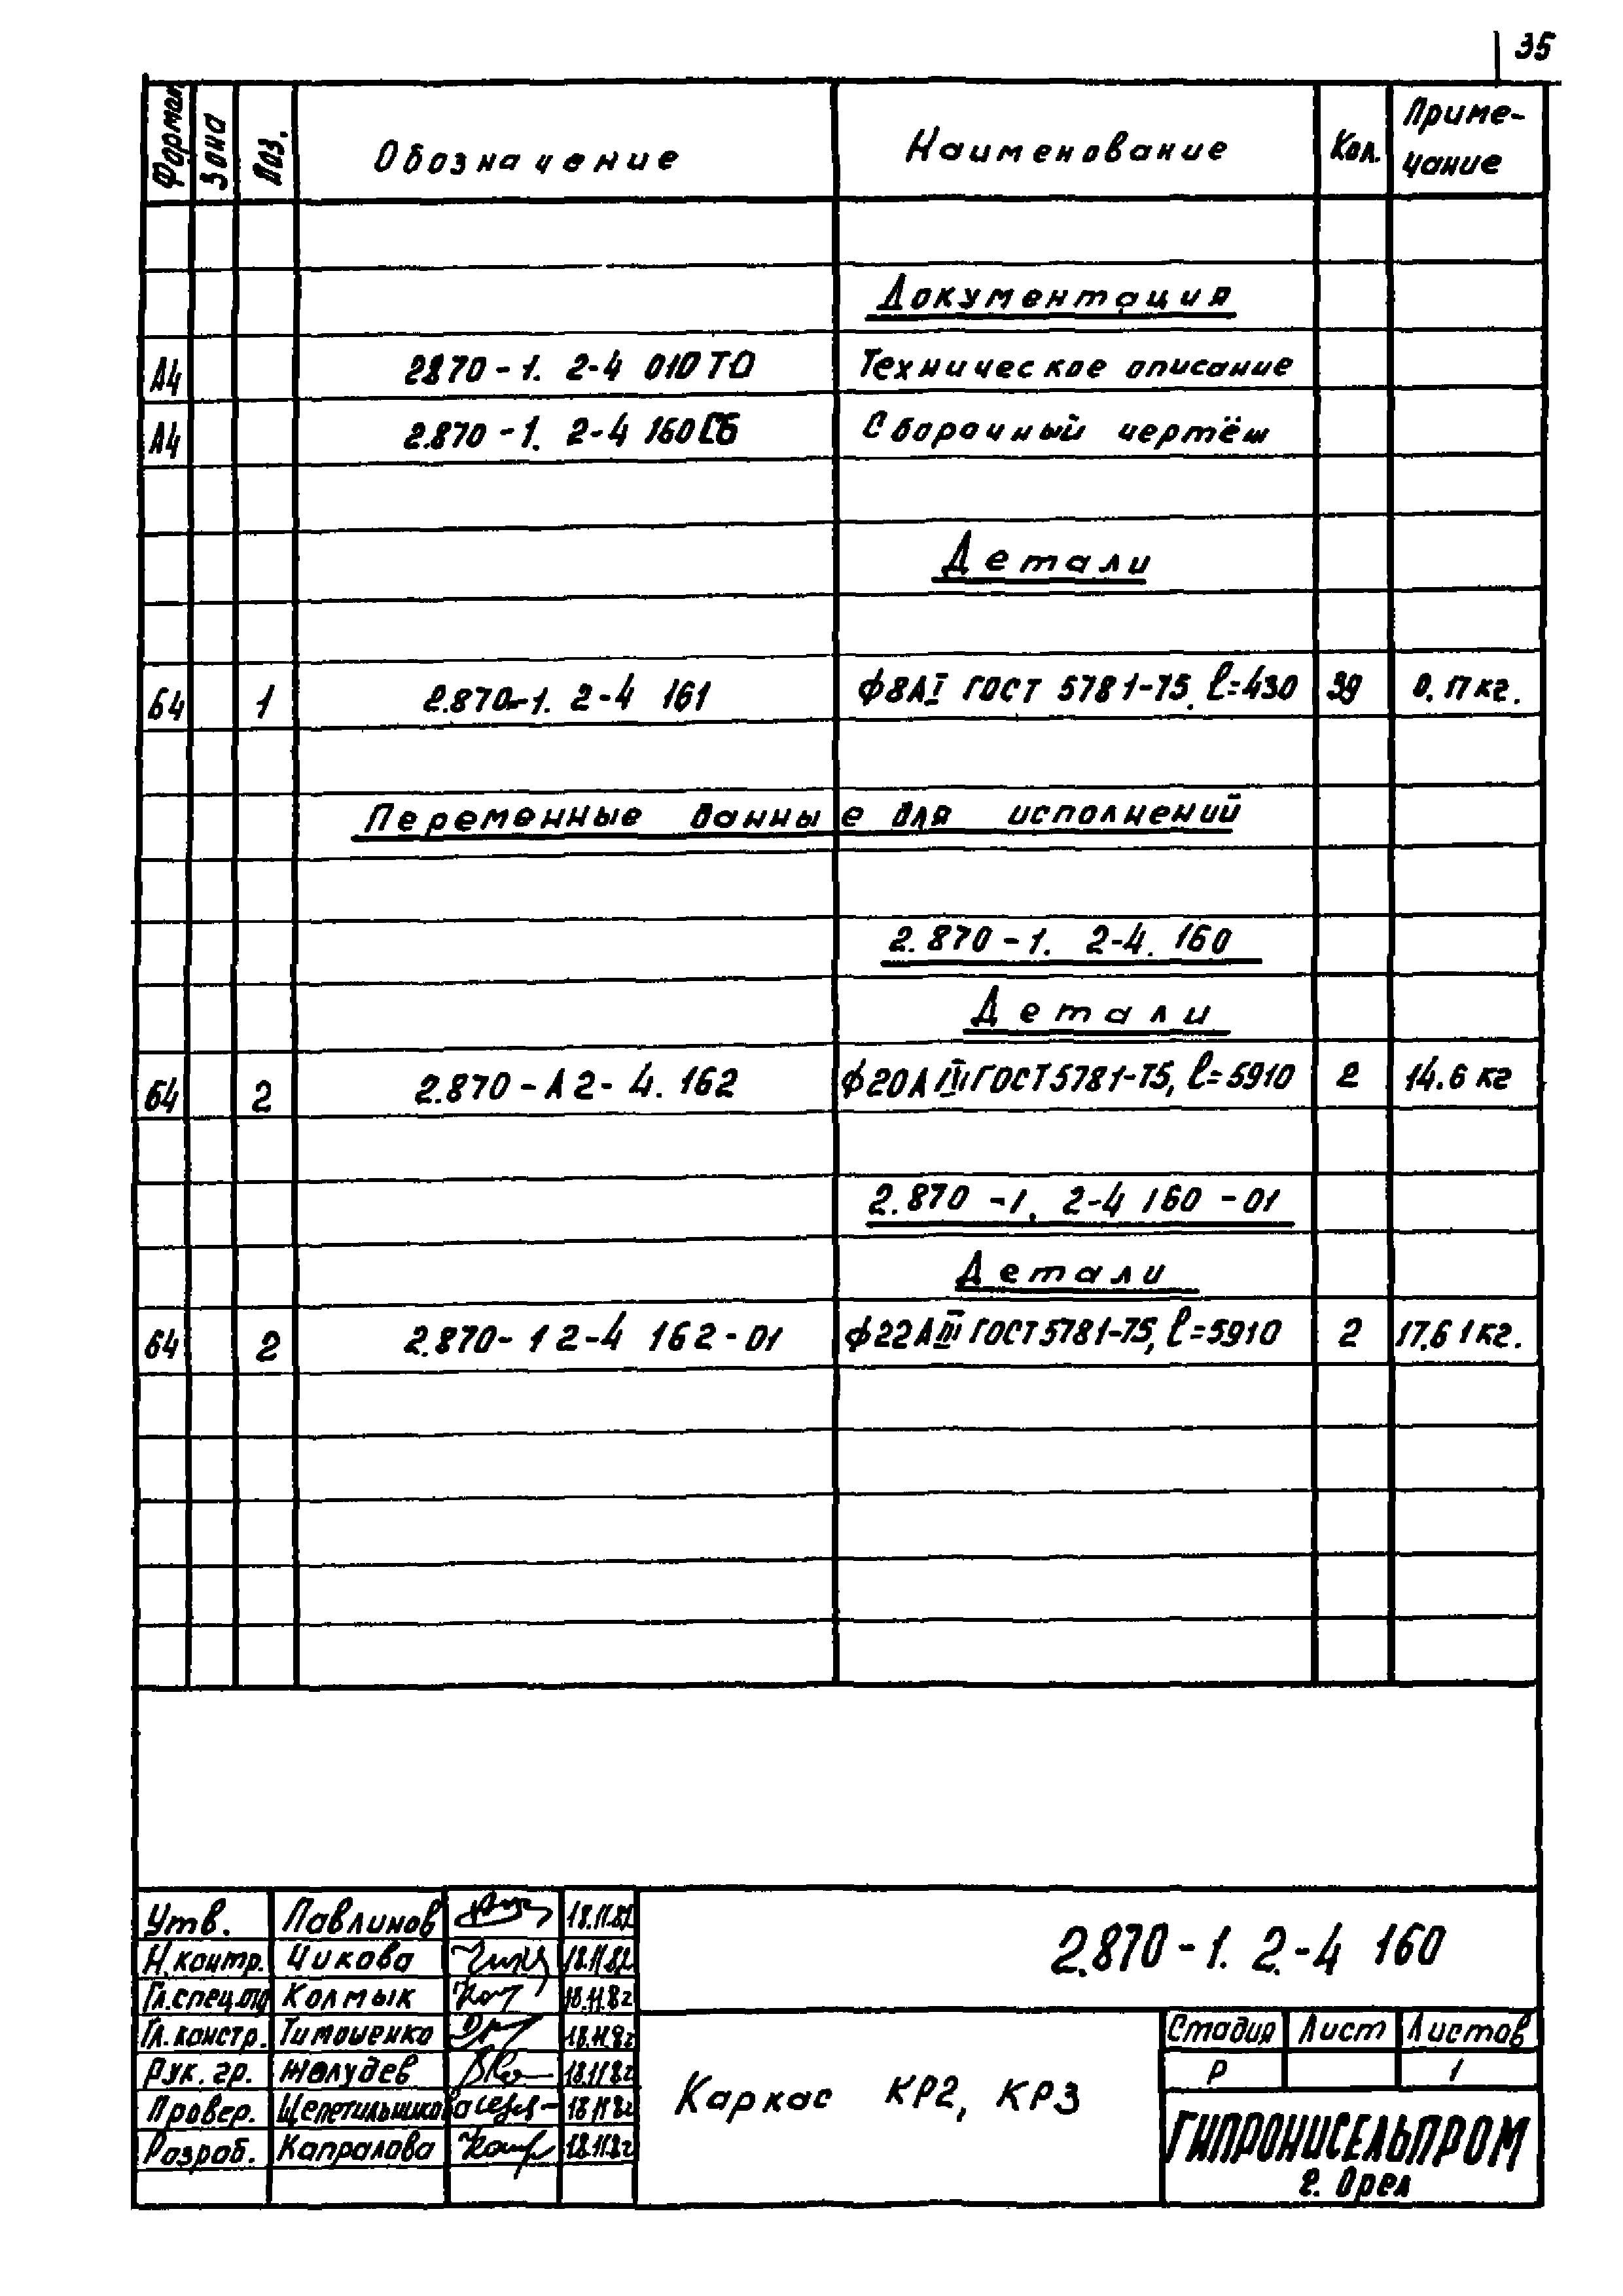 35
Формат Зона Поз. Обозначение Наименование Кол. Приме-
чание
Документация
А4 2870-1. 2-4 010 ТО Техническое описание
А4 2.870-1. 2-4 160 СБ Сборочный чертёж
Детали
Б4 1 2.870-1. 2-4 161 ф8АI ГОСТ 5781-75. l=430 39 0.17кг.
Переменные данные для исполнений
2.870-1. 2-4. 160
Детали
Б4 2 2.870-А2-4. 162 ф20АIII ГОСТ5781-75, l=5910 2 14.6 кг
2.870-1. 2-4 160-01
Детали
Б4 2 2.870-1 2-4 162-01 ф22АIII ГОСТ5781-75, l=5910 2 17.61кг.
Утв. Павлинов 18.11.82
Н.контр. Чикова 18.11.82
Гл.спец.отд Колмык 18.11.82
Гл.констр. Тимошенко 18.11.82
Рук. гр. Желудев 18.11.82
Провер. 18.11.82
Разраб. Капралова 18.11.82
2.870-1. 2.-4 160
Каркас КР2, КР3
Стадия Лист Листов
Р 1
ГИПРОНИСЕЛЬПРОМ
г. Орел